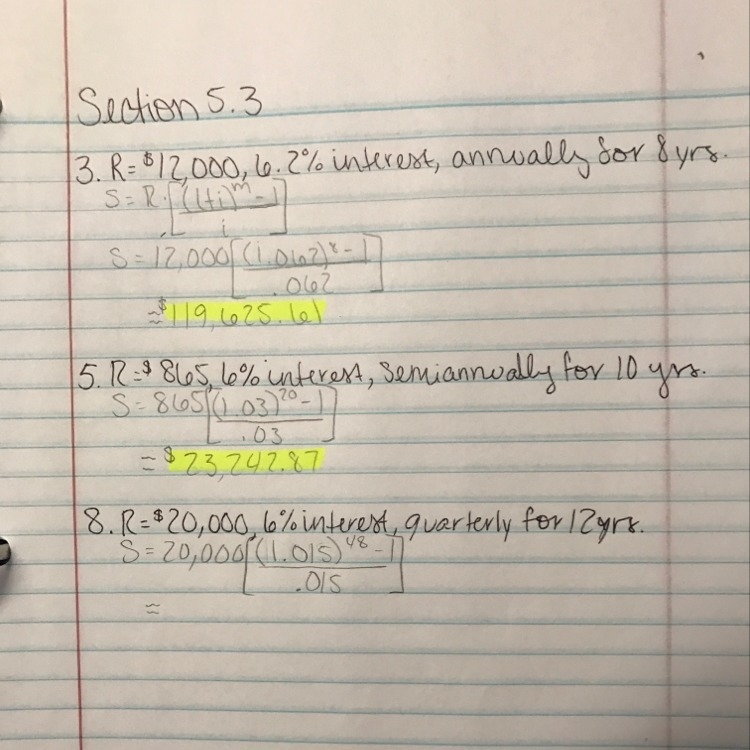 Section 5.3
3. R=$12,000, 6.2% interest, annually for 8 yrs.
S = R·[((1+i)^m - 1)/i]
S = 12,000[((1.062)^8 - 1)/.062]
≈ $119,625.61
5. R=$865, 6% interest, semiannually for 10 yrs.
S = 865[((1.03)^20 - 1)/.03]
= $23,242.87
8. R=$20,000, 6% interest, quarterly for 12 yrs.
S = 20,000[((1.015)^48 - 1)/.015]
≈